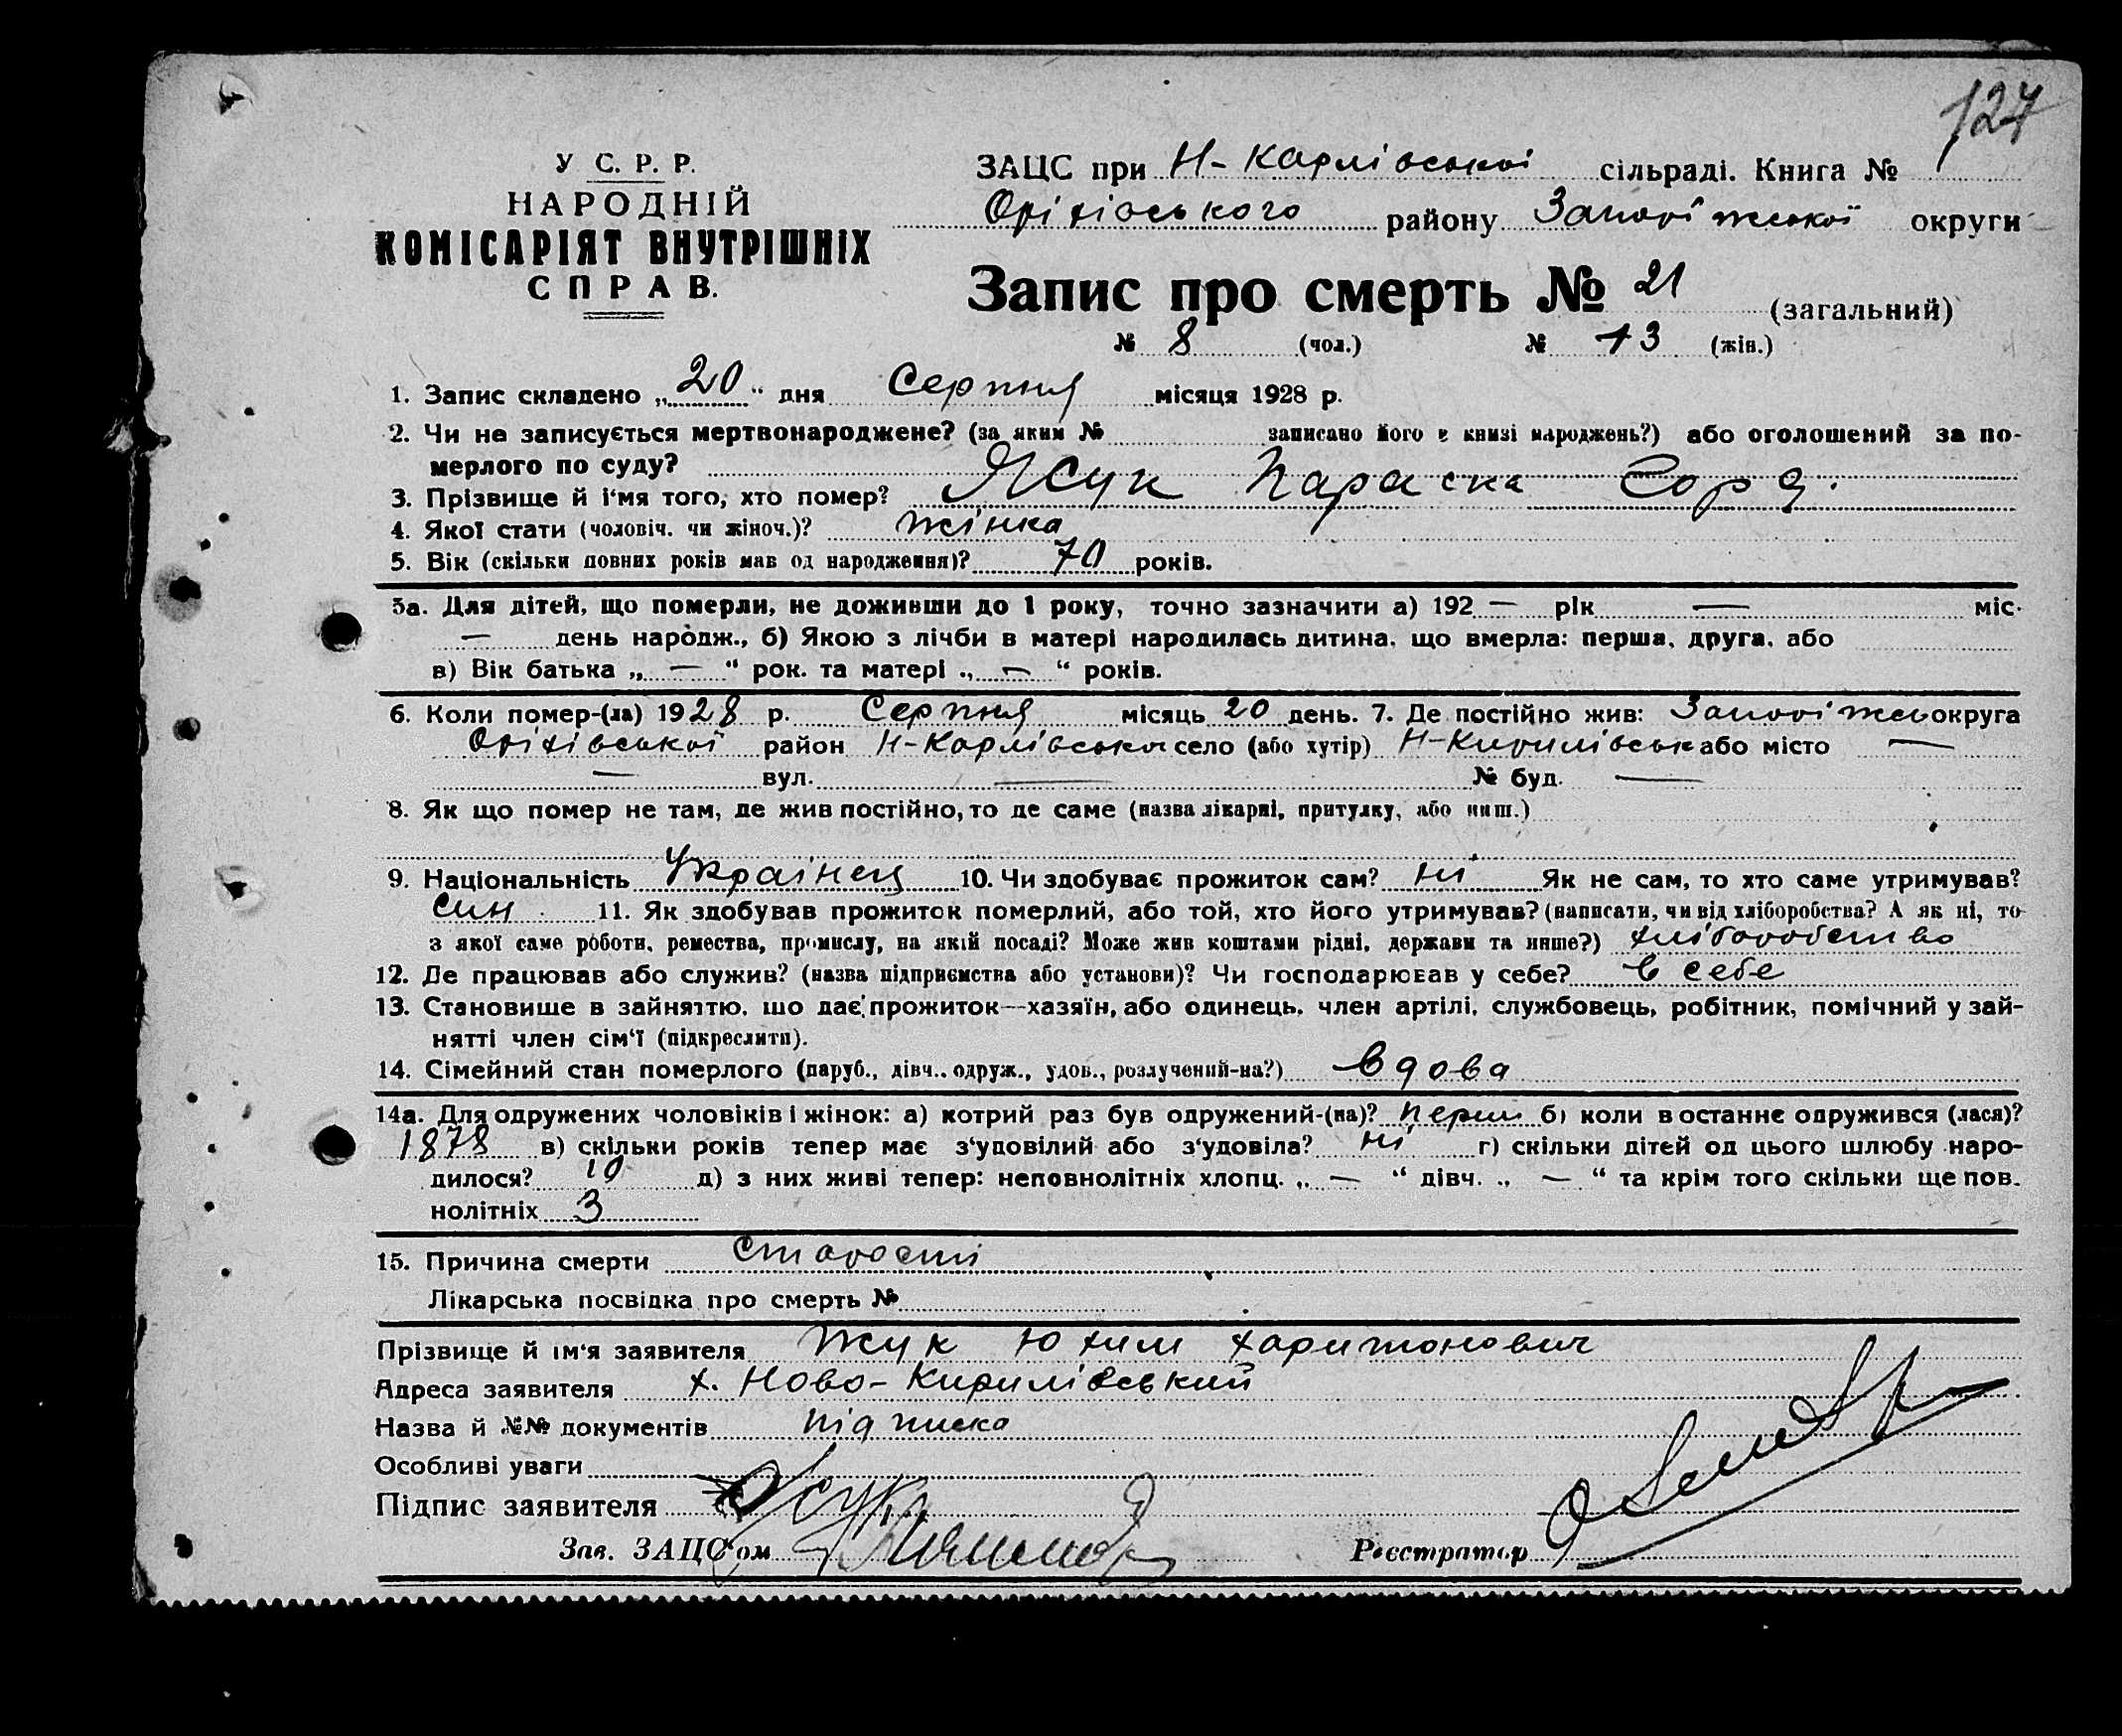 127
У С. Р. Р.
НАРОДНІЙ
КОМІСАРІЯТ ВНУТРІШНІХ
СПРАВ.
ЗАЦС при Н-Карлівської сільраді. Книга №
Оріхівського району Запоріжської округи
Запис про смерть № 21 (загальний)
№ 8 (чол.) № 13 (жін.)
1. Запис складено „20“ дня Серпня місяця 1928 р.
2. Чи не записується мертвонароджене? (за яким № записано його в книзі народжень?) або оголошений за по-
мерлого по суду?
3. Прізвище й і'мя того, хто помер? Жук Параска
4. Якої стати (чоловіч. чи жіноч.)? жінка
5. Вік (скільки повних років мав од народження)? 70 років.
5а. Для дітей, що померли, не доживши до 1 року, точно зазначити а) 192 — рік — міс.
— день народж., б) Якою з лічби в матері народилась дитина, що вмерла: перша, друга, або
в) Вік батька „ — “ рок. та матері „ — “ років.
6. Коли помер-(ла) 1928 р. Серпня місяць 20 день. 7. Де постійно жив: Запоріжсь округа
Оріхівської район Н-Карлівської село (або хутір) Н-Кирилівськ або місто —
— вул. — № буд. —
8. Як що помер не там, де жив постійно, то де саме (назва лікарні, притулку, або инш.)
9. Національність Українец 10. Чи здобуває прожиток сам? ні Як не сам, то хто саме утримував?
син. 11. Як здобував прожиток померлий, або той, хто його утримував? (написати, чи від хліборобства? А як ні, то
з якої саме роботи, ремества, промислу, на якій посаді? Може жив коштами рідні, держави та инше?) хліборобство
12. Де працював або служив? (назва підприємства або установи)? Чи господарював у себе? в себе
13. Становище в зайняттю, що дає прожиток—хазяїн, або одинець, член артілі, службовець, робітник, помічний у зай-
нятті член сім'ї (підкреслити).
14. Сімейний стан померлого (паруб., дівч., одруж., удов., розлучений-на?) вдова
14а. Для одружених чоловіків і жінок: а) котрий раз був одружений-(на)? перши б) коли востаннє одружився (лася)?
1878 в) скільки років тепер має з'удовілий або з'удовіла? ні г) скільки дітей од цього шлюбу наро-
дилося? 10 д) з них живі тепер: неповнолітніх хлопц. „ — “ дівч. „ — “ та крім того скільки ще пов.
нолітніх 3
15. Причина смерти старості
Лікарська посвідка про смерть №
Прізвище й ім'я заявителя Жук Юхим Харитонович
Адреса заявителя х. Ново-Кирилівський
Назва й №№ документів підписка
Особливі уваги
Підпис заявителя
Зав. ЗАЦС'ом
Реєстратор